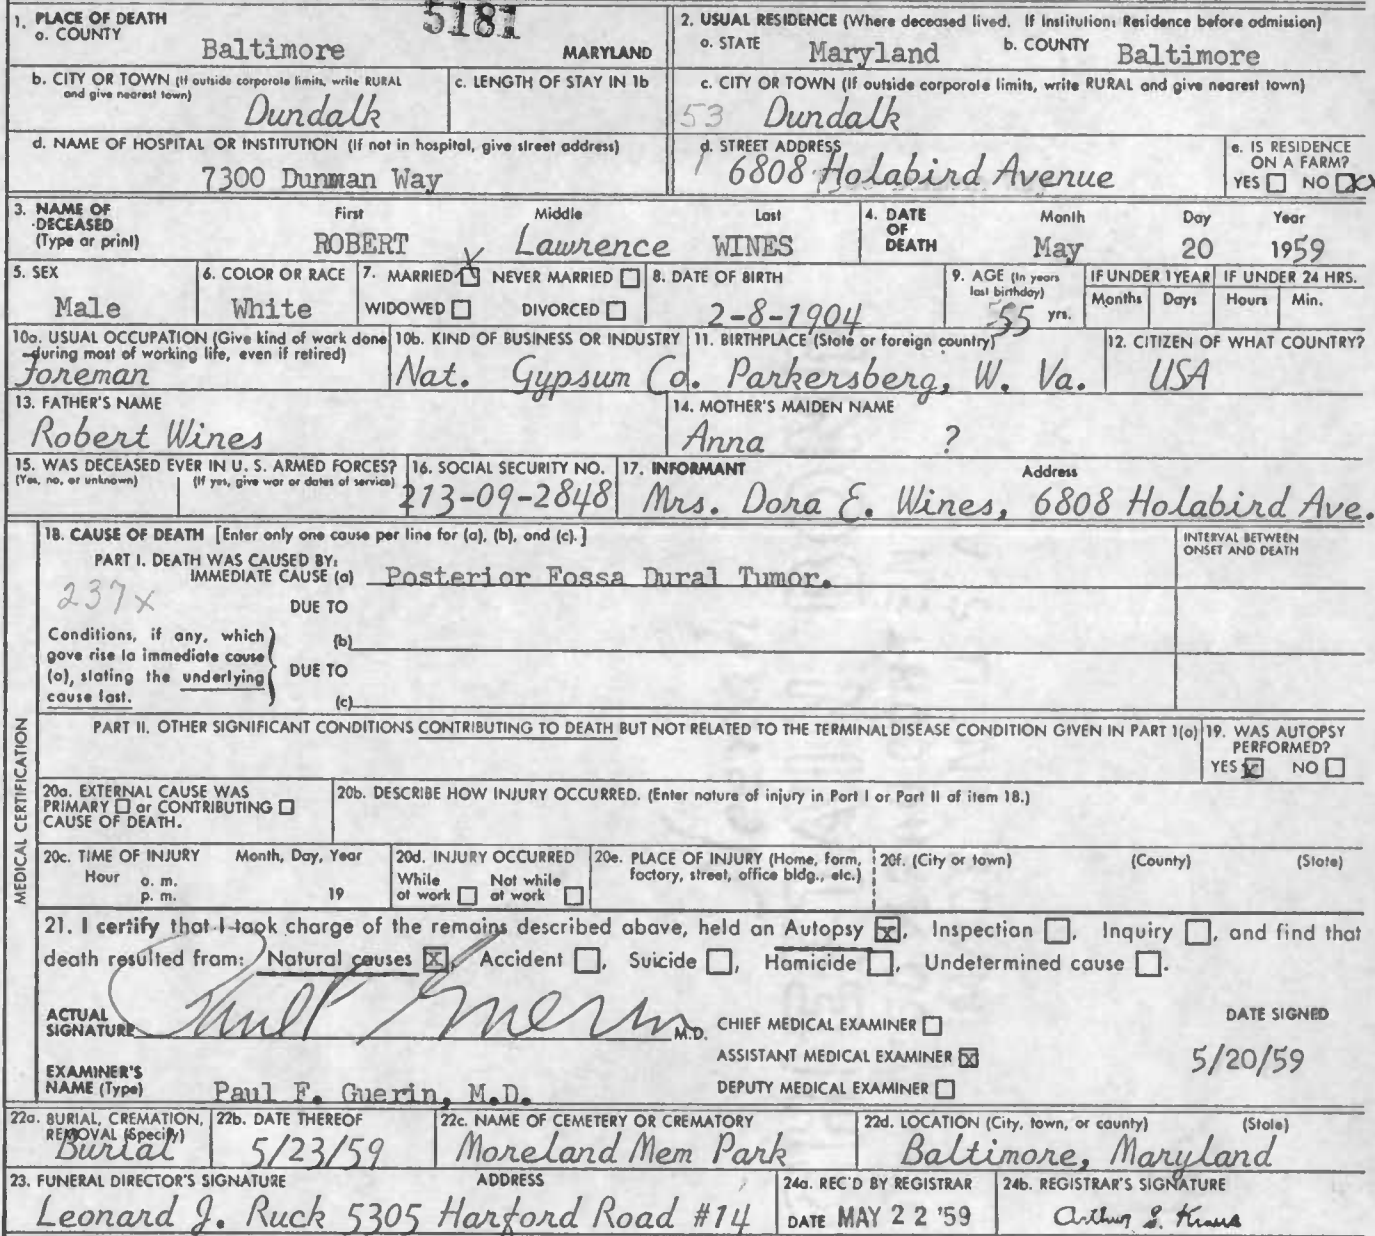 5181
1. PLACE OF DEATH
a. COUNTY
Baltimore MARYLAND
2. USUAL RESIDENCE (Where deceased lived. If Institution: Residence before admission)
a. STATE Maryland b. COUNTY Baltimore
b. CITY OR TOWN (If outside corporate limits, write RURAL
and give nearest town)
Dundalk
c. LENGTH OF STAY IN 1b
c. CITY OR TOWN (If outside corporate limits, write RURAL and give nearest town)
53 Dundalk
d. NAME OF HOSPITAL OR INSTITUTION (If not in hospital, give street address)
7300 Dunman Way
d. STREET ADDRESS
6808 Holabird Avenue
e. IS RESIDENCE
ON A FARM?
YES NO XX
3. NAME OF
DECEASED
(Type or print)
First Middle Last
ROBERT Lawrence WINES
4. DATE
OF
DEATH
Month Day Year
May 20 1959
5. SEX
Male
6. COLOR OR RACE
White
7. MARRIED X NEVER MARRIED
WIDOWED DIVORCED
8. DATE OF BIRTH
2-8-1904
9. AGE (In years
last birthday)
55 yrs.
IF UNDER 1 YEAR
Months Days
IF UNDER 24 HRS.
Hours Min.
10a. USUAL OCCUPATION (Give kind of work done
during most of working life, even if retired)
Foreman
10b. KIND OF BUSINESS OR INDUSTRY
Nat. Gypsum Co.
11. BIRTHPLACE (State or foreign country)
Parkersberg, W. Va.
12. CITIZEN OF WHAT COUNTRY?
USA
13. FATHER'S NAME
Robert Wines
14. MOTHER'S MAIDEN NAME
Anna ?
15. WAS DECEASED EVER IN U. S. ARMED FORCES?
(Yes, no, or unknown) (If yes, give war or dates of service)
16. SOCIAL SECURITY NO.
213-09-2848
17. INFORMANT Address
Mrs. Dora E. Wines, 6808 Holabird Ave.
MEDICAL CERTIFICATION
18. CAUSE OF DEATH [Enter only one cause per line for (a), (b), and (c).]
INTERVAL BETWEEN
ONSET AND DEATH
PART I. DEATH WAS CAUSED BY:
IMMEDIATE CAUSE (a) Posterior Fossa Dural Tumor.
237x
DUE TO
Conditions, if any, which
gave rise to immediate cause
(a), stating the underlying
cause last.
(b)
DUE TO
(c)
PART II. OTHER SIGNIFICANT CONDITIONS CONTRIBUTING TO DEATH BUT NOT RELATED TO THE TERMINAL DISEASE CONDITION GIVEN IN PART 1(a)
19. WAS AUTOPSY
PERFORMED?
YES X NO
20a. EXTERNAL CAUSE WAS
PRIMARY or CONTRIBUTING
CAUSE OF DEATH.
20b. DESCRIBE HOW INJURY OCCURRED. (Enter nature of injury in Part I or Part II of item 18.)
20c. TIME OF INJURY Month, Day, Year
Hour a. m.
p. m. 19
20d. INJURY OCCURRED
While Not while
at work at work
20e. PLACE OF INJURY (Home, farm,
factory, street, office bldg., etc.)
20f. (City or town) (County) (State)
21. I certify that I took charge of the remains described above, held an Autopsy X, Inspection, Inquiry, and find that
death resulted from: Natural causes X, Accident, Suicide, Homicide, Undetermined cause.
ACTUAL
SIGNATURE Paul F. Guerin M.D.
CHIEF MEDICAL EXAMINER
ASSISTANT MEDICAL EXAMINER X
DEPUTY MEDICAL EXAMINER
DATE SIGNED
5/20/59
EXAMINER'S
NAME (Type) Paul F. Guerin, M.D.
22a. BURIAL, CREMATION,
REMOVAL (Specify)
Burial
22b. DATE THEREOF
5/23/59
22c. NAME OF CEMETERY OR CREMATORY
Moreland Mem Park
22d. LOCATION (City, town, or county) (State)
Baltimore, Maryland
23. FUNERAL DIRECTOR'S SIGNATURE ADDRESS
Leonard J. Ruck 5305 Harford Road #14
24a. REC'D BY REGISTRAR
DATE MAY 22 '59
24b. REGISTRAR'S SIGNATURE
Arthur S. Kraus